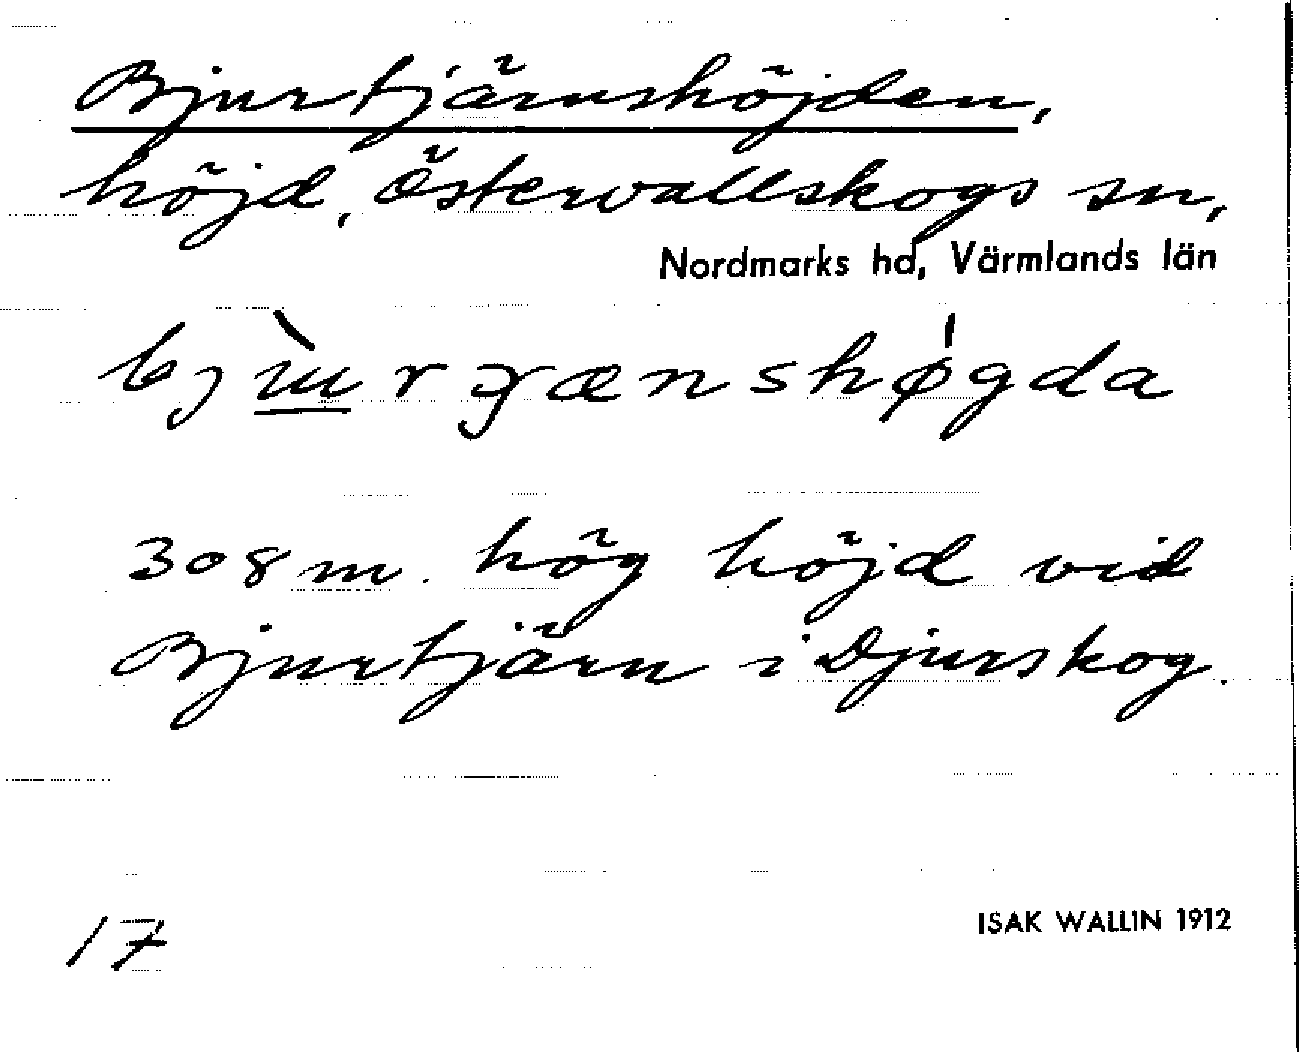 Bjurtjärnshöjden,
höjd, Östervallskogs sn,
Nordmarks hd, Värmlands län
308 m. hög höjd vid
Bjurtjärn i Djurskog.
17
ISAK WALLIN 1912